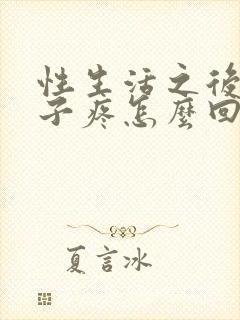 性生活之後
子疼怎麼回
夏言冰